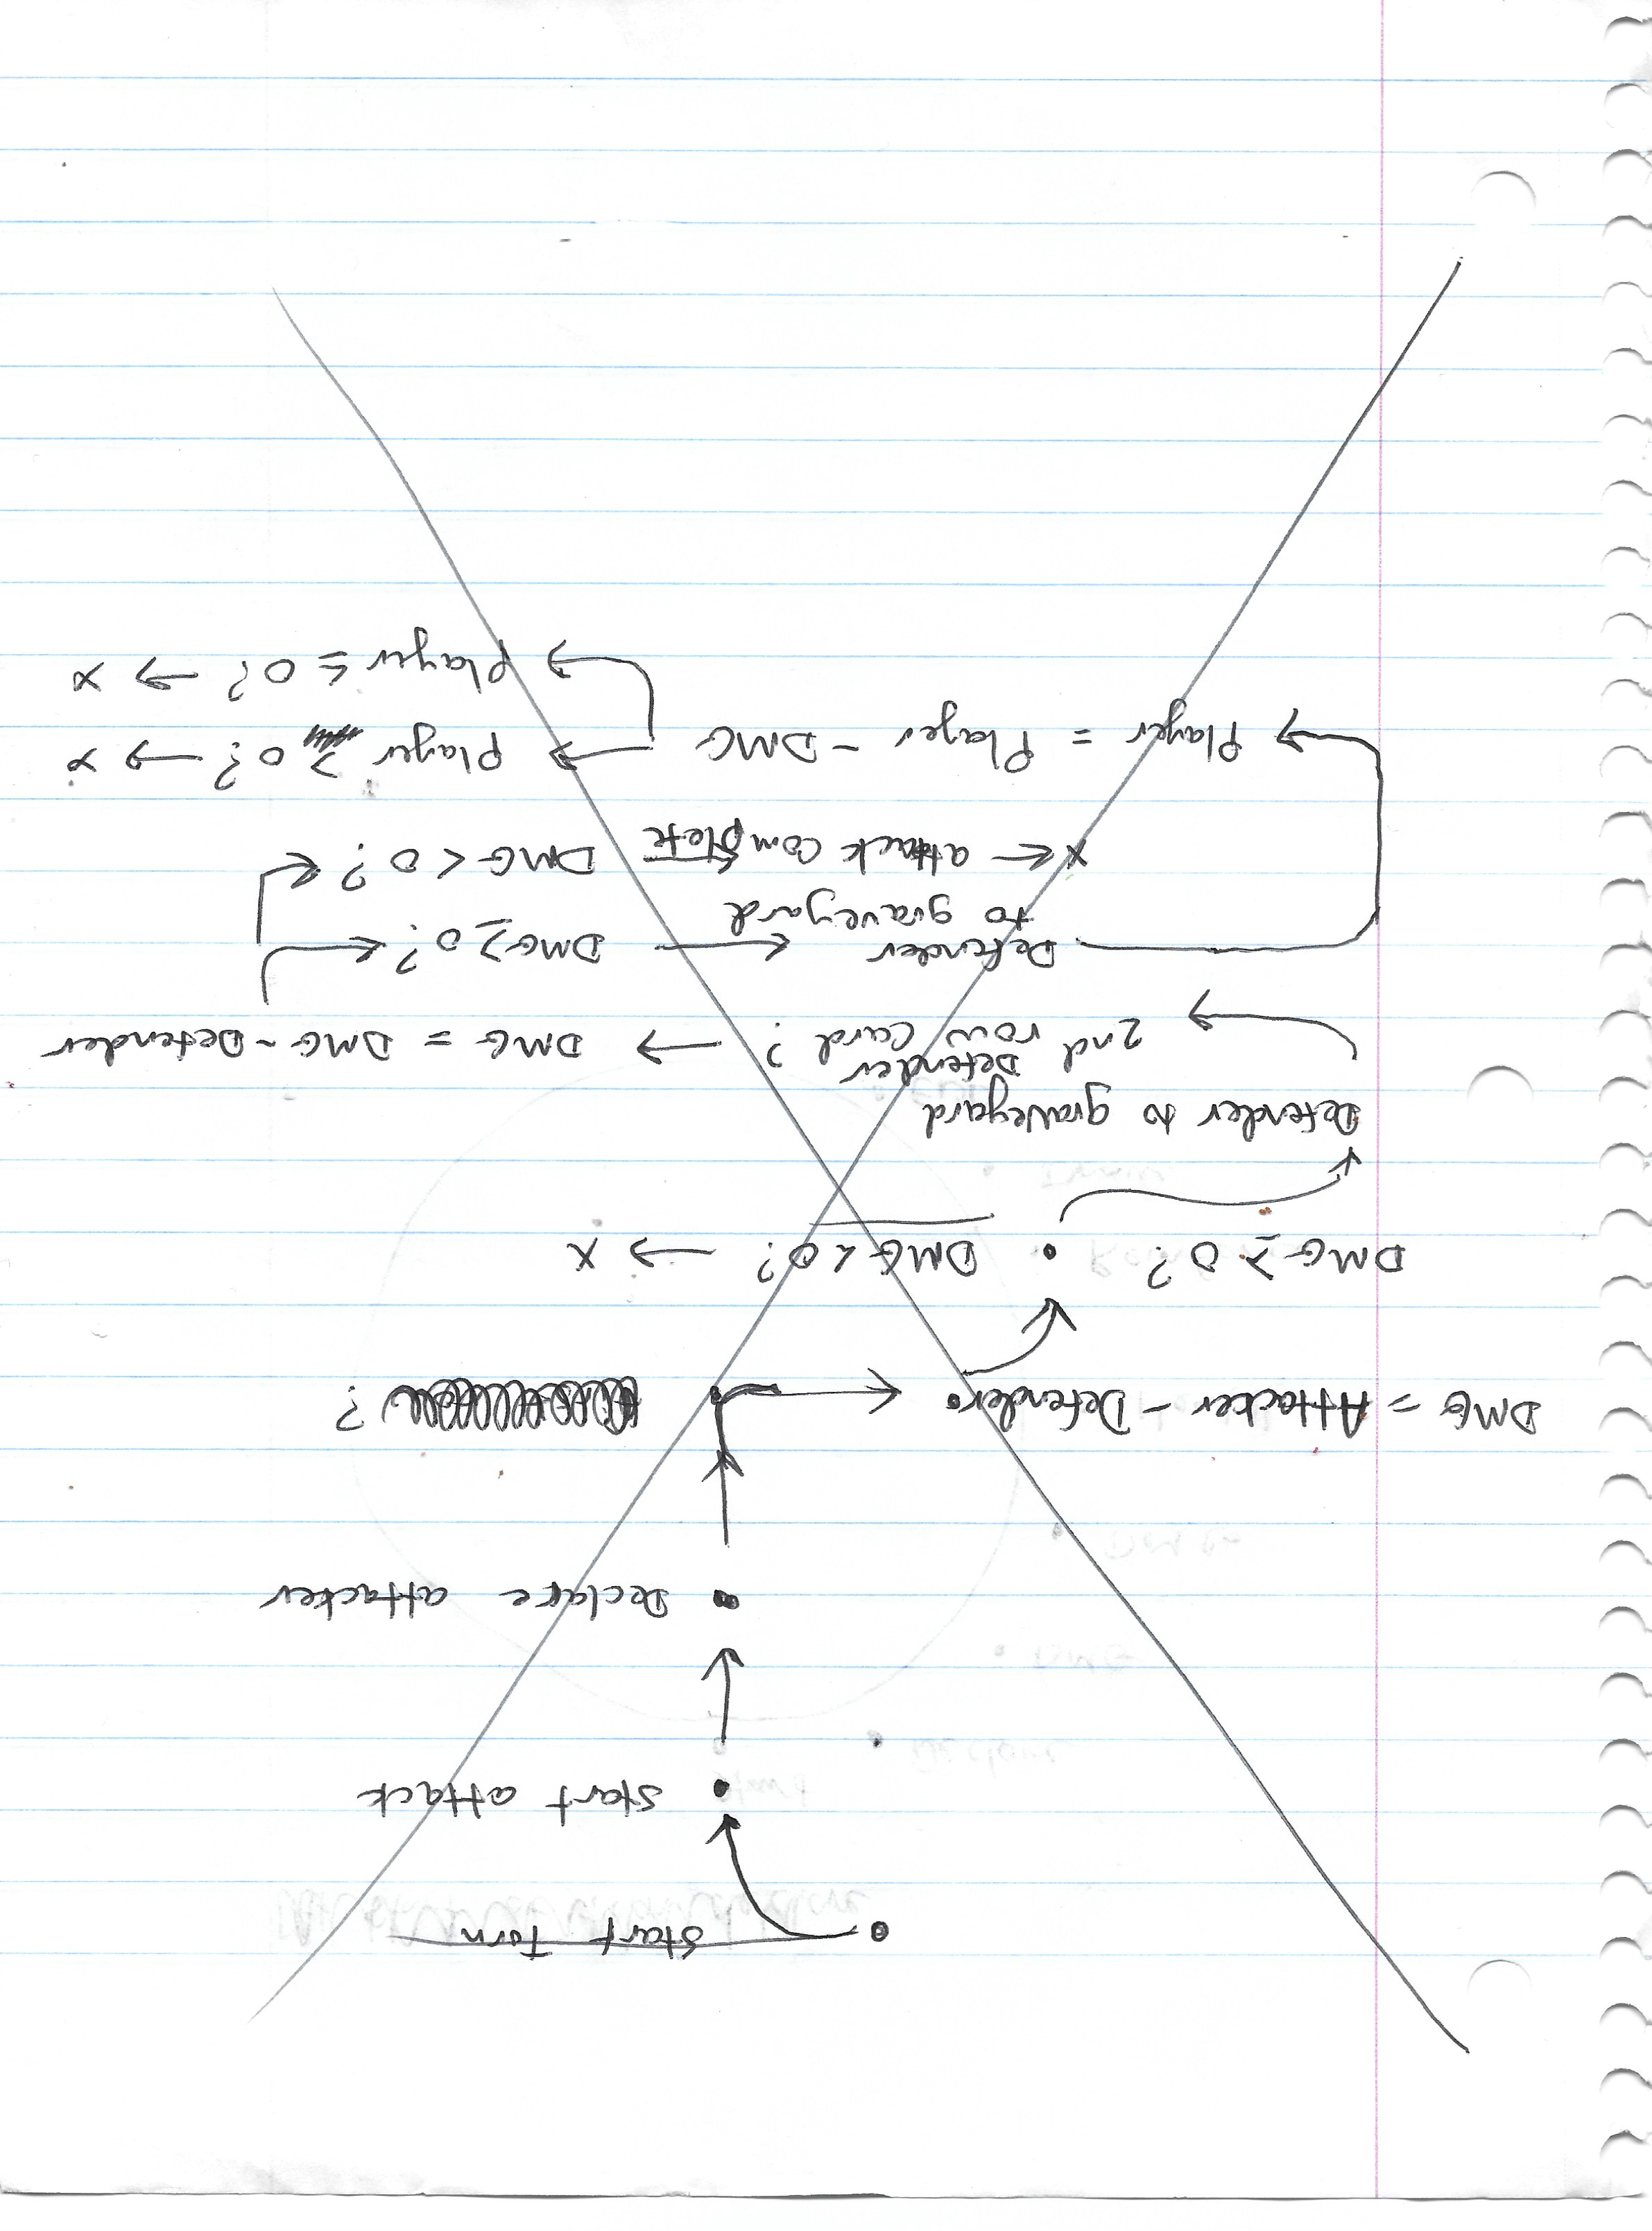 Start Turn
Start attack
Declare attacker
DMG = Attacker - Defender
?
DMG ≥ 0? • DMG < 0? → X
Defender to graveyard
Defender
2nd row card? → DMG = DMG - Defender
Defender ← DMG ≥ 0?
to graveyard
X ← attack complete ← DMG < 0?
Player = Player - DMG → Player > 0? → X
Player ≤ 0? → X